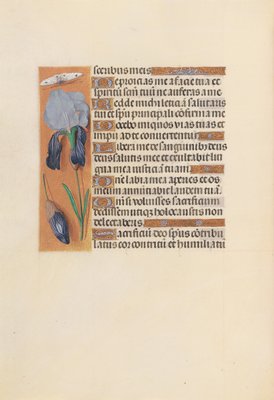 secibus meis
Ne proicias me a facie tua et
spiritū sanctū tuū ne auferas a me
Redde michi leticiā salutaris
tui et spū principali cōfirma me
Docebo iniquos vias tuas et
impii ad te convertentur
Libera me de sanguinibus deus
deus salutis mee et exultabit lin
gua mea iusticiā tuam
Dn̄e labia mea aperies et os
meum annūtiabit laudem tuā
Qm̄ si voluisses sacrificium
dedissem utiqz holocaustis non
delectaberis
Sacrificiū deo spūs cōtribu
latus cor contritū et humiliatū